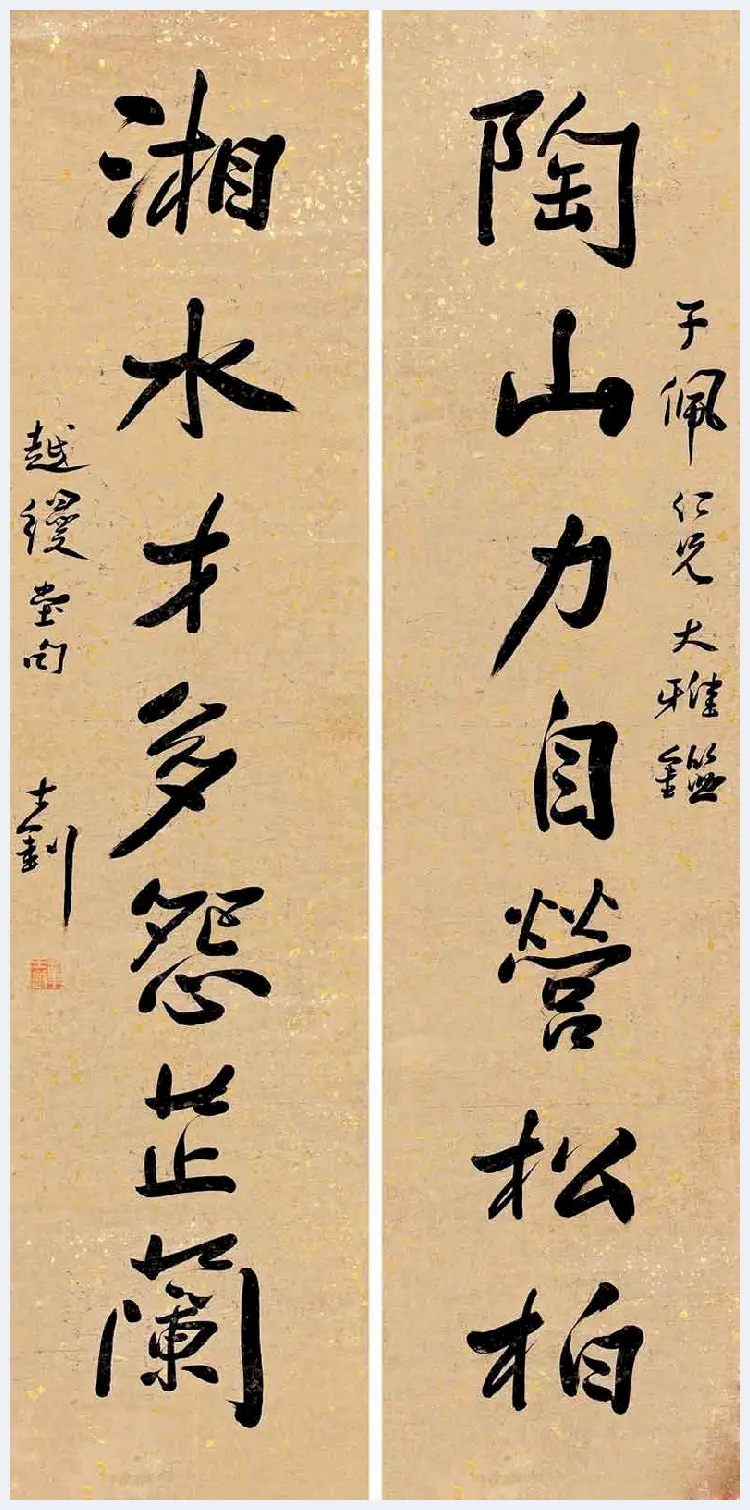 陶山力自營松柏
于佩仁兄大雅鑑
湘水才多怨芷蘭
越縵堂句
士釗